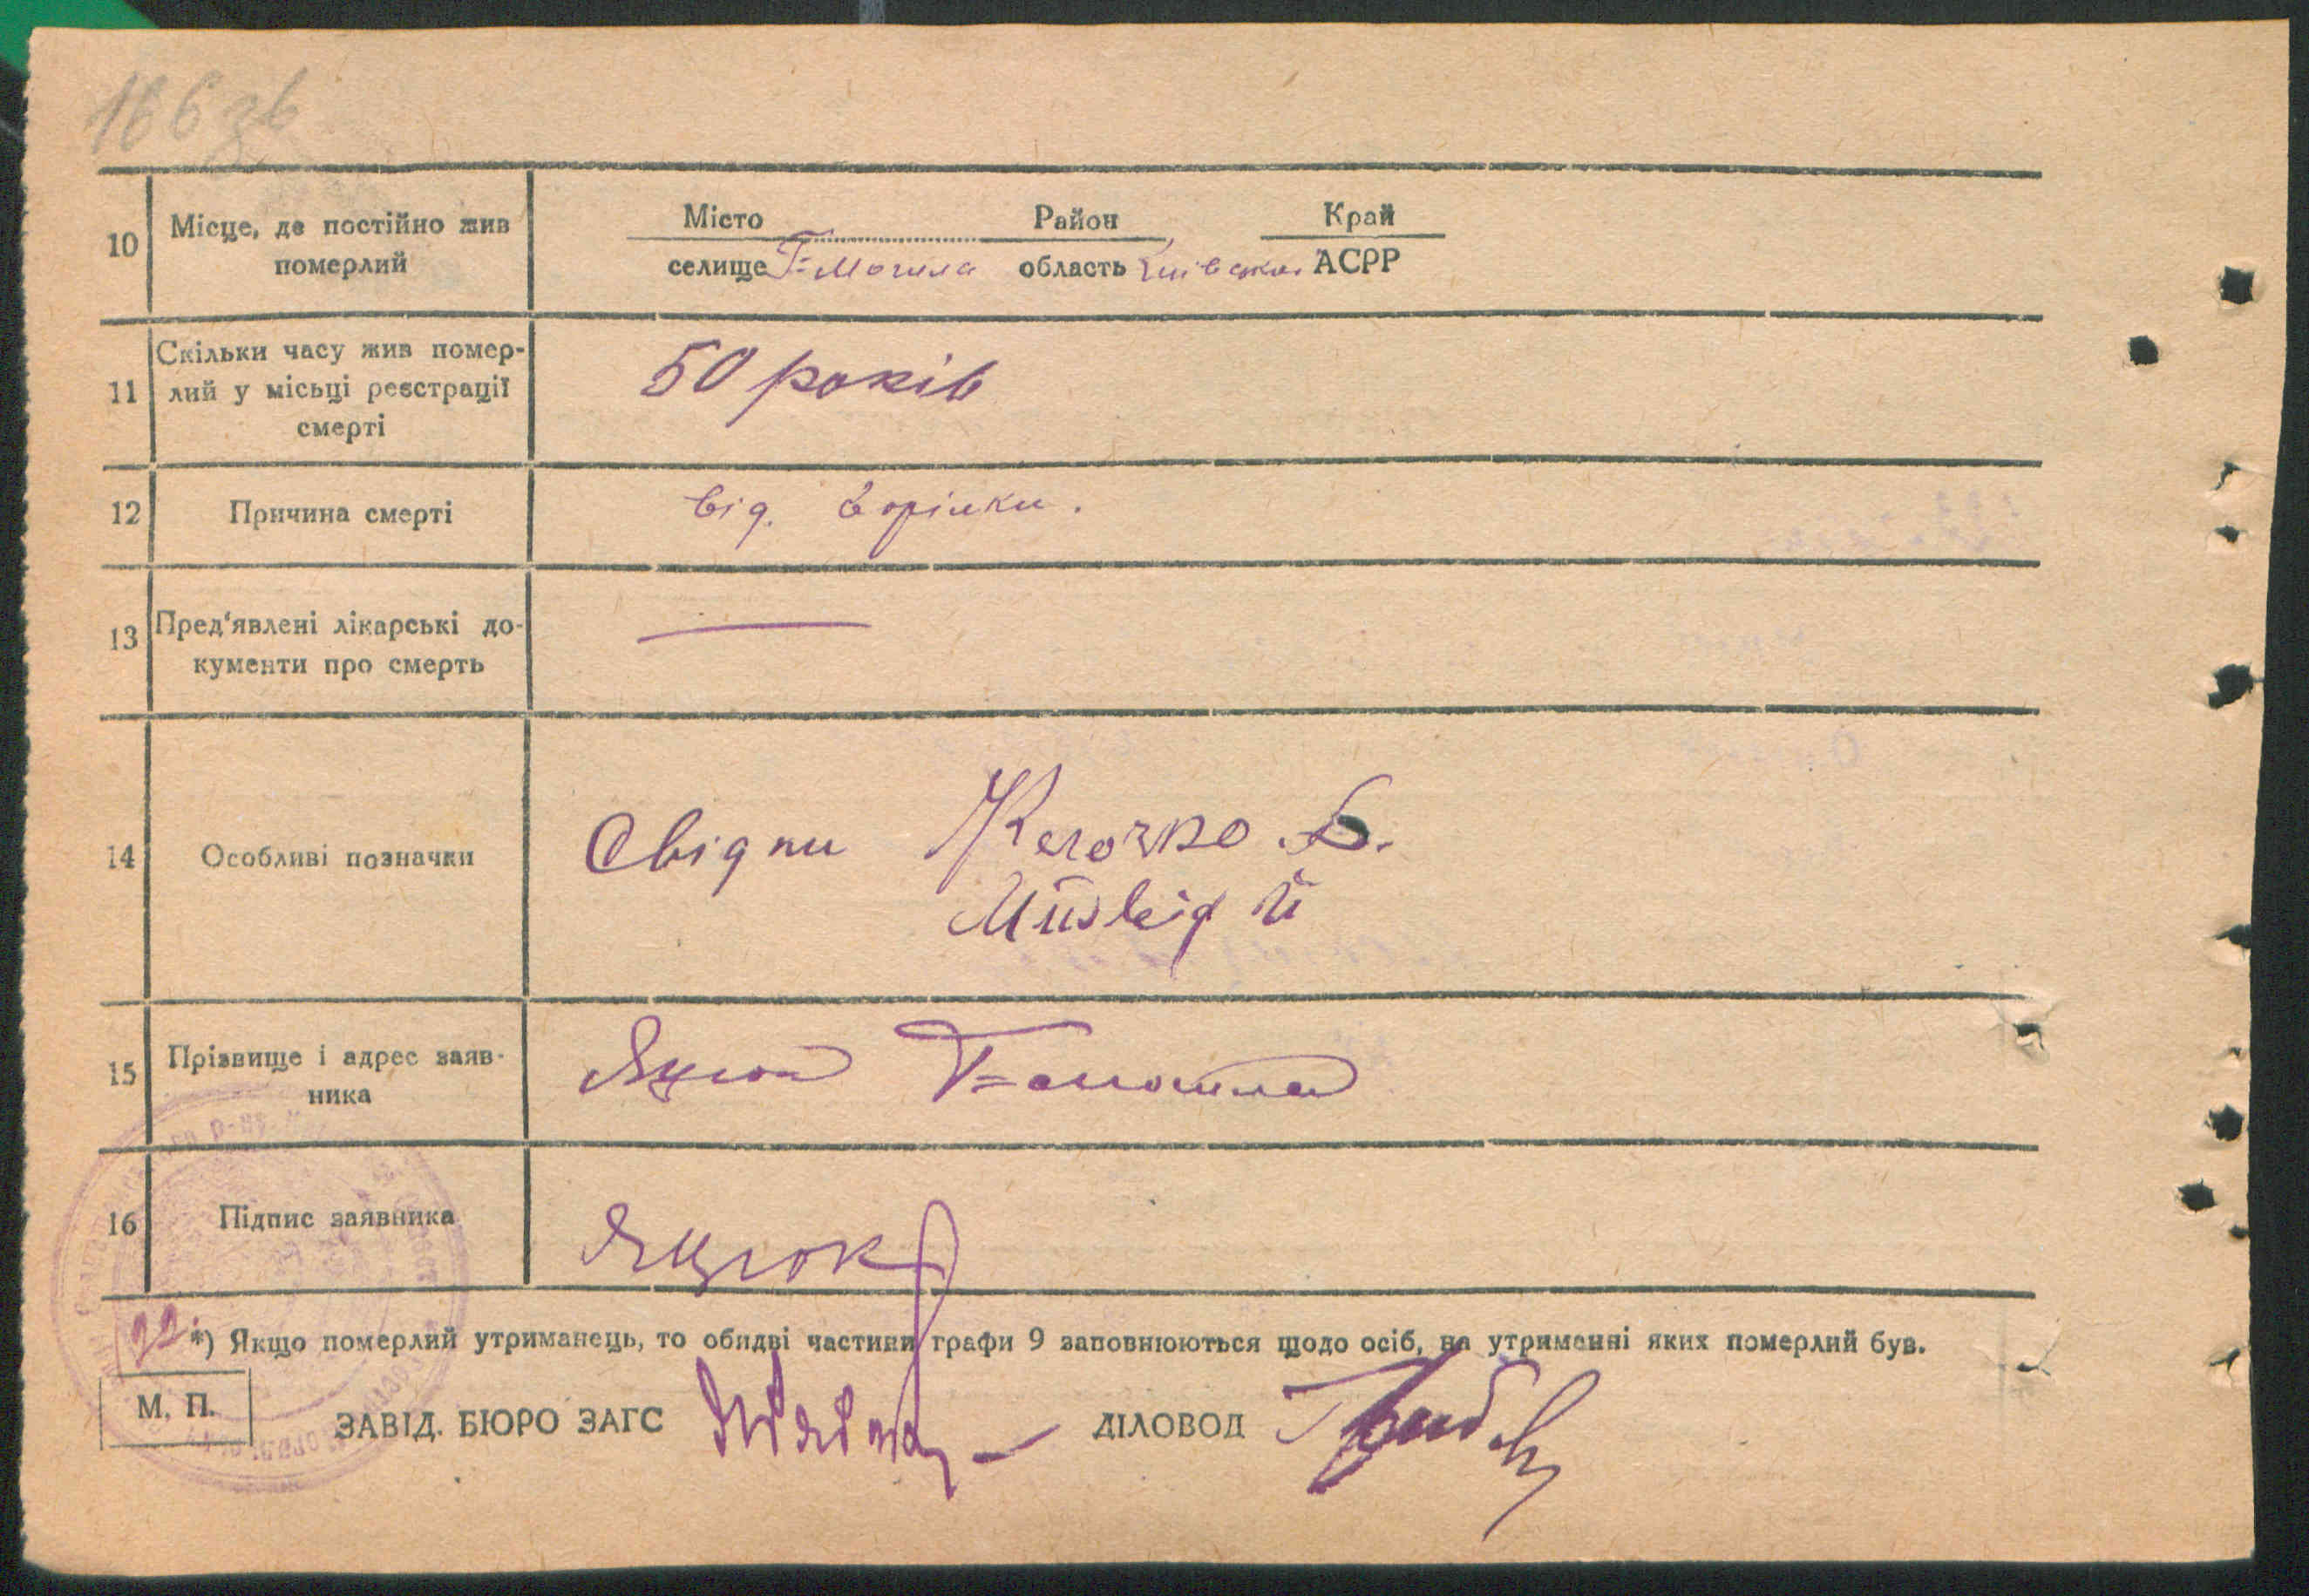 166 зв
10 Місце, де постійно жив
померлий
Місто Район Край
селище Г=Могила область Київська АСРР
11 Скільки часу жив помер-
лий у місьці реєстрації
смерті
50 років
12 Причина смерті
від. горілки.
13 Пред'явлені лікарські до-
кументи про смерть
14 Особливі позначки
Свідки
15 Прізвище і адрес заяв-
ника
Яцюк Г=Могила
16 Підпис заявника
Яцюк
22
*) Якщо померлий утриманець, то обидві частини графи 9 заповнюються щодо осіб, на утриманні яких померлий був.
М. П.
ЗАВІД. БЮРО ЗАГС
ДІЛОВОД